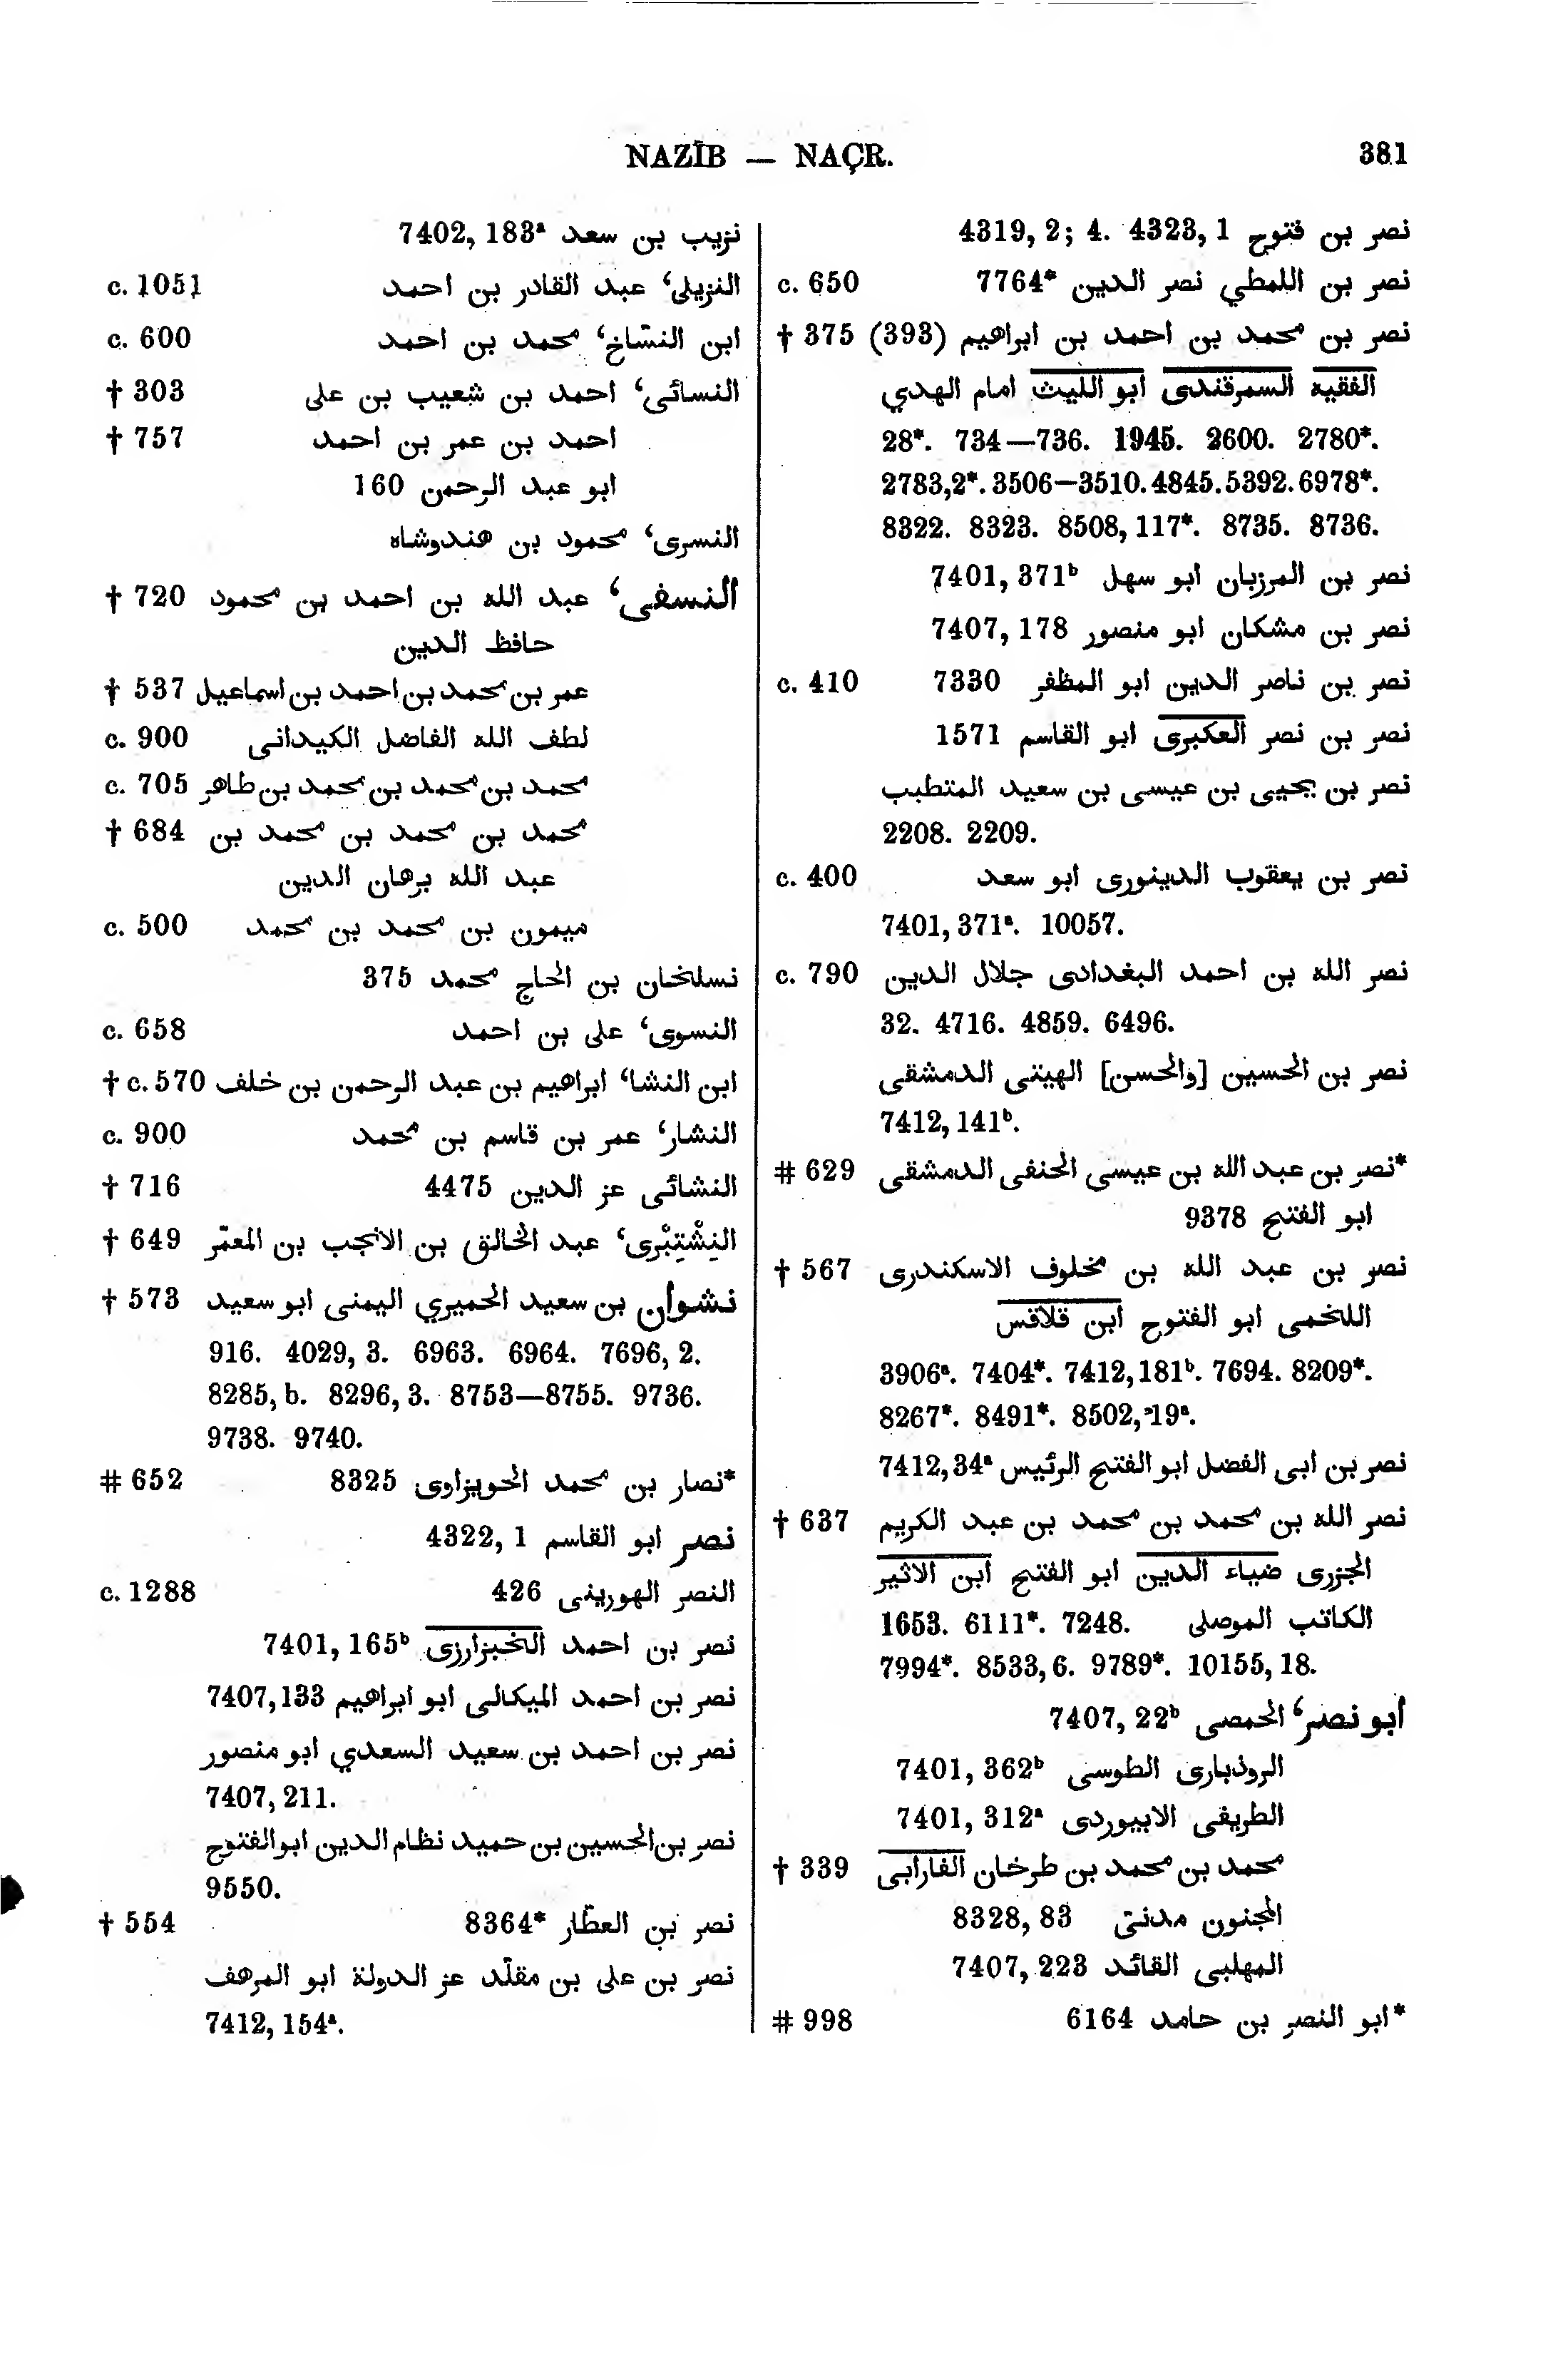 NAZÎB — NAÇR. 381
نزيب بن سعد 7402, 183ª
النزيلى، عبد القادر بن احمد c. 1051
ابن النسّاخ، محمد بن احمد c. 600
النسائى، احمد بن شعيب بن على † 303
احمد بن عمر بن احمد † 757
ابو عبد الرحمن 160
النسرى، محمود بن هندوشاه
النسفى، عبد الله بن احمد بن محمود † 720
حافظ الدين
عمر بن محمد بن احمد بن اسماعيل † 537
لطف الله الفاضل الكيدانى c. 900
محمد بن محمد بن محمد بن طاهر c. 705
محمد بن محمد بن محمد بن † 684
عبد الله برهان الدين
ميمون بن محمد بن محمد c. 500
نسلخان بن الحاج محمد 375
النسوى، على بن احمد c. 658
ابن النشا، ابراهيم بن عبد الرحمن بن خلف † c. 570
النشار، عمر بن قاسم بن محمد c. 900
النشائى عز الدين 4475 † 716
النِشْتِبْرى، عبد الخالق بن الانجب بن المعمّر † 649
نشوان بن سعيد الحميري اليمنى ابو سعيد † 573
916. 4029, 3. 6963. 6964. 7696, 2.
8285, b. 8296, 3. 8753—8755. 9736.
9738. 9740.
*نصار بن محمد الحويزاوى 8325 # 652
نصر ابو القاسم 4322, 1
النصر الهورينى 426 c. 1288
نصر بن احمد الخبزارزى 7401, 165ᵇ
نصر بن احمد الميكالى ابو ابراهيم 7407, 133
نصر بن احمد بن سعيد السعدي ابو منصور
7407, 211.
نصر بن الحسين بن حميد نظام الدين ابو الفتوح
9550.
نصر بن العطّار *8364 † 554
نصر بن على بن مقلّد عز الدولة ابو المرهف
7412, 154ª.
نصر بن فتوح 4319, 2; 4. 4323, 1
نصر بن اللمطي نصر الدين *7764 c. 650
نصر بن محمد بن احمد بن ابراهيم (393) 375 †
الفقيه السمرقندى ابو الليث امام الهدي
28*. 734—736. 1945. 2600. 2780*.
2783,2*. 3506—3510. 4845. 5392. 6978*.
8322. 8323. 8508, 117*. 8735. 8736.
نصر بن المرزبان ابو سهل 7401, 371ᵇ
نصر بن مشكان ابو منصور 7407, 178
نصر بن ناصر الدين ابو المظفر 7330 c. 410
نصر بن نصر العكبرى ابو القاسم 1571
نصر بن يحيى بن عيسى بن سعيد المتطبب
2208. 2209.
نصر بن يعقوب الدينورى ابو سعد c. 400
7401, 371ª. 10057.
نصر الله بن احمد البغدادى جلال الدين c. 790
32. 4716. 4859. 6496.
نصر بن الحسين [والحسن] الهيتى الدمشقى
7412, 141ᵇ.
*نصر بن عبد الله بن عيسى الحنفى الدمشقى # 629
ابو الفتح 9378
نصر بن عبد الله بن مخلوف الاسكندرى † 567
اللخمى ابو الفتوح ابن قلاقس
3906ª. 7404*. 7412, 181ᵇ. 7694. 8209*.
8267*. 8491*. 8502, 19ª.
نصر بن ابى الفضل ابو الفتح الرئيس 7412, 34ª
نصر الله بن محمد بن محمد بن عبد الكريم † 637
الجزرى ضياء الدين ابو الفتح ابن الاثير
الكاتب الموصلى 1653. 6111*. 7248.
7994*. 8533, 6. 9789*. 10155, 18.
ابو نصر، الحمصى 7407, 22ᵇ
الروذبارى الطوسى 7401, 362ᵇ
الطريفى الابيوردى 7401, 312ª
محمد بن محمد بن طرخان الفارابى † 339
المجنون مدنى 8328, 83
المهلبى القائد 7407, 223
*ابو النصر بن حامد 6164 # 998